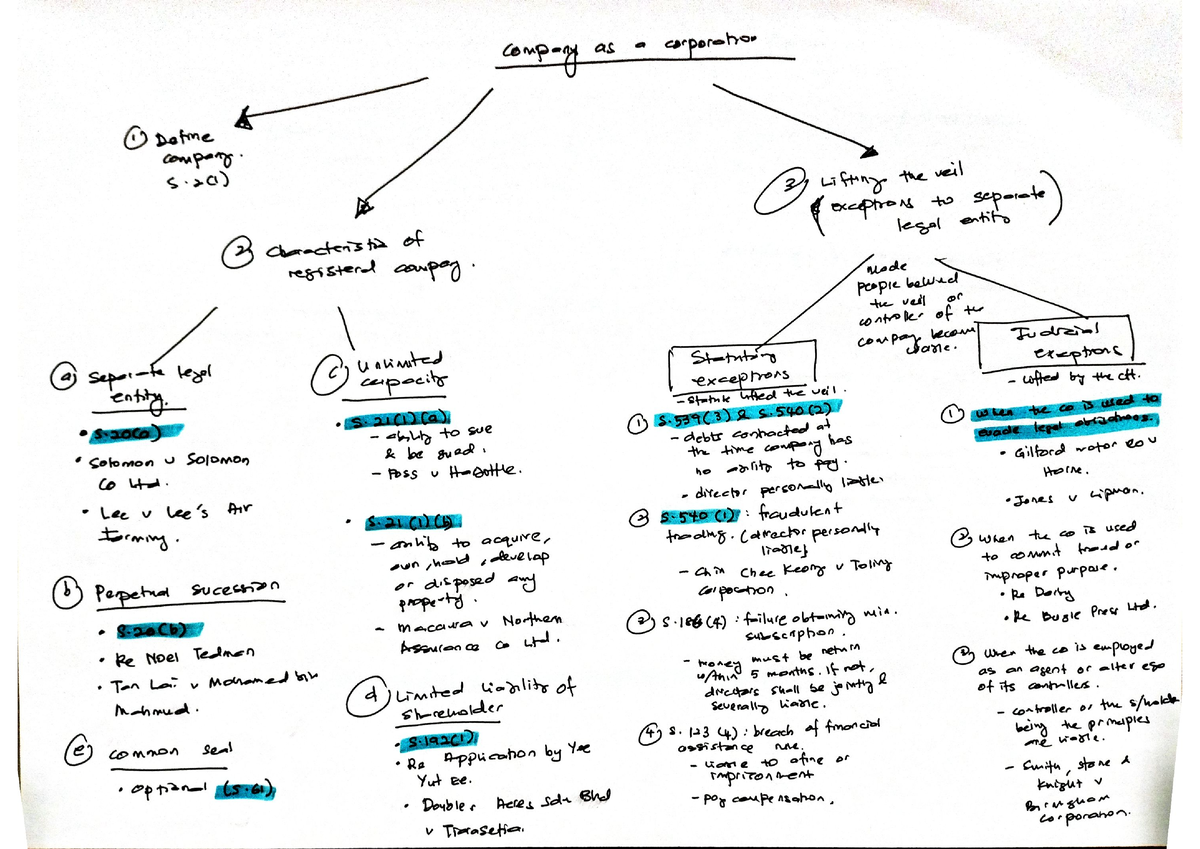 Company as a corporation
① Define
company.
S.2(1)
② Characteristic of
registered company.
③ Lifting the veil
(exceptions to separate
legal entity)
ⓐ Separate legal
entity.
• S.20(a)
• Solomon v Solomon
Co Ltd.
• Lee v Lee's Air
Farming.
ⓑ Perpetual sucession
• S.20(b)
• Re Noel Tedman
• Tan Lai v Mohamed bin
Mahmud.
ⓔ common seal
• optional (S.61)
ⓒ Unlimited
capacity
• S.21(1)(a)
- ability to sue
& be sued.
- Foss v Harbottle.
• S.21(1)(b)
- ability to acquire,
own, hold, develop
or disposed any
property.
- Macaura v Northern
Assurance Co Ltd.
ⓓ Limited liability of
shareholder
• S.192(1)
• Re Application by Yee
Yut Ee.
• Double Acres Sdn Bhd
v Tiarasetia.
Made
people behind
the veil or
controller of the
company become
liable.
Statutory
exceptions
- Statute lifted the veil.
① S.539(3) & S.540(2)
- debts contracted at
the time company has
no ability to pay.
• director personally liable.
② S.540(1) : fraudulent
trading. (director personally
liable)
- Chin Chee Keong v Toling
corporation.
③ : failure obtaining min.
subscription.
- money must be return
within 5 months. If not,
directors shall be jointly &
severally liable.
④ S.123(4) : breach of financial
assistance rule.
- liable to a fine or
imprisonment
- pay compensation.
Judicial
exceptions
- lifted by the ct.
① When the co is used to
evade legal obligations.
• Gilford Motor Co v
Horne.
• Jones v Lipman.
② When the co is used
to commit fraud or
improper purpose.
• Re Darby
• Re Bugle Press Ltd.
③ When the co is employed
as an agent or alter ego
of its controllers.
- controller or the s/holder
being the principles
are liable.
- Smith, Stone &
Knight v
Birmingham
Corporation.